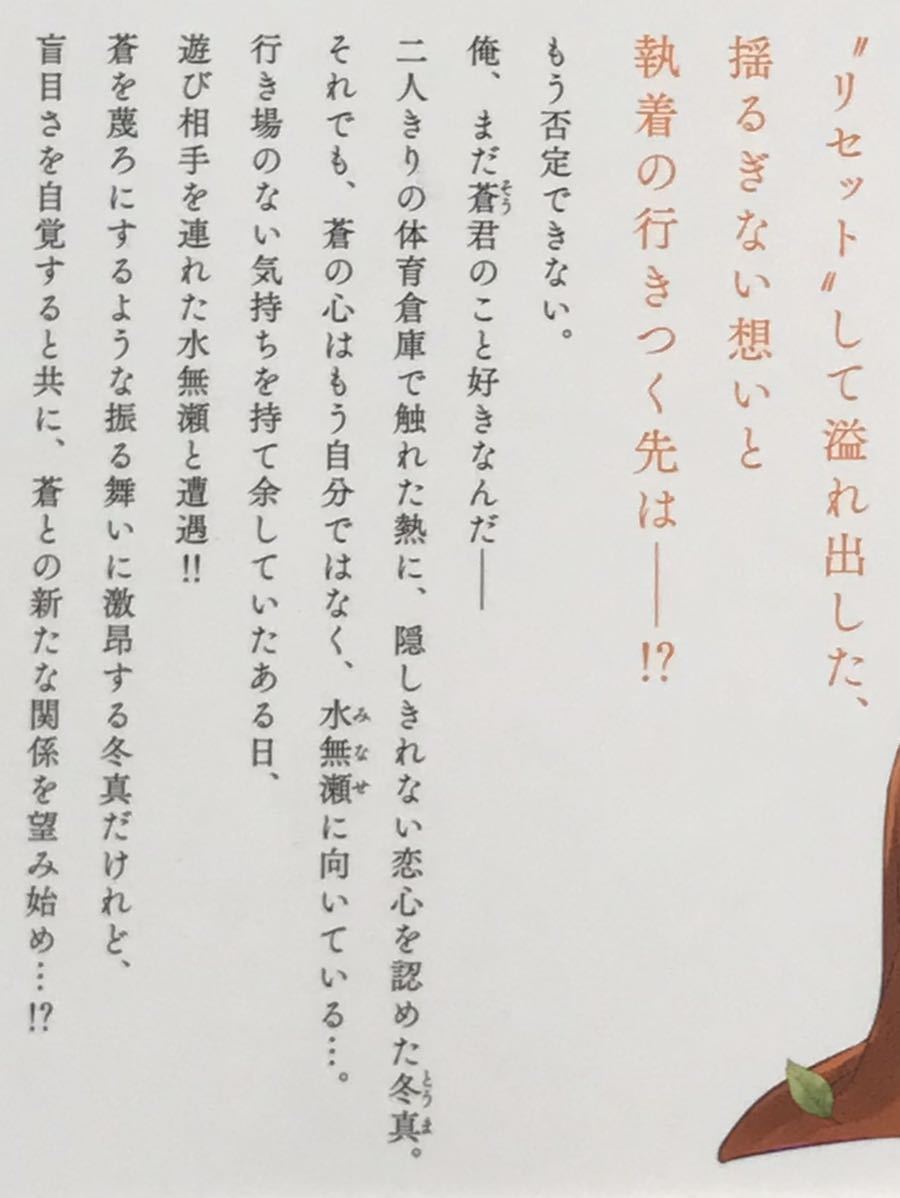 〝リセット〟して溢れ出した、
揺るぎない想いと
執着の行きつく先は――!?
もう否定できない。
俺、まだ蒼君のこと好きなんだ――
二人きりの体育倉庫で触れた熱に、隠しきれない恋心を認めた冬真。
それでも、蒼の心はもう自分ではなく、水無瀬に向いている…。
行き場のない気持ちを持て余していたある日、
遊び相手を連れた水無瀬と遭遇!!
蒼を蔑ろにするような振る舞いに激昂する冬真だけれど、
盲目さを自覚すると共に、蒼との新たな関係を望み始め…!?